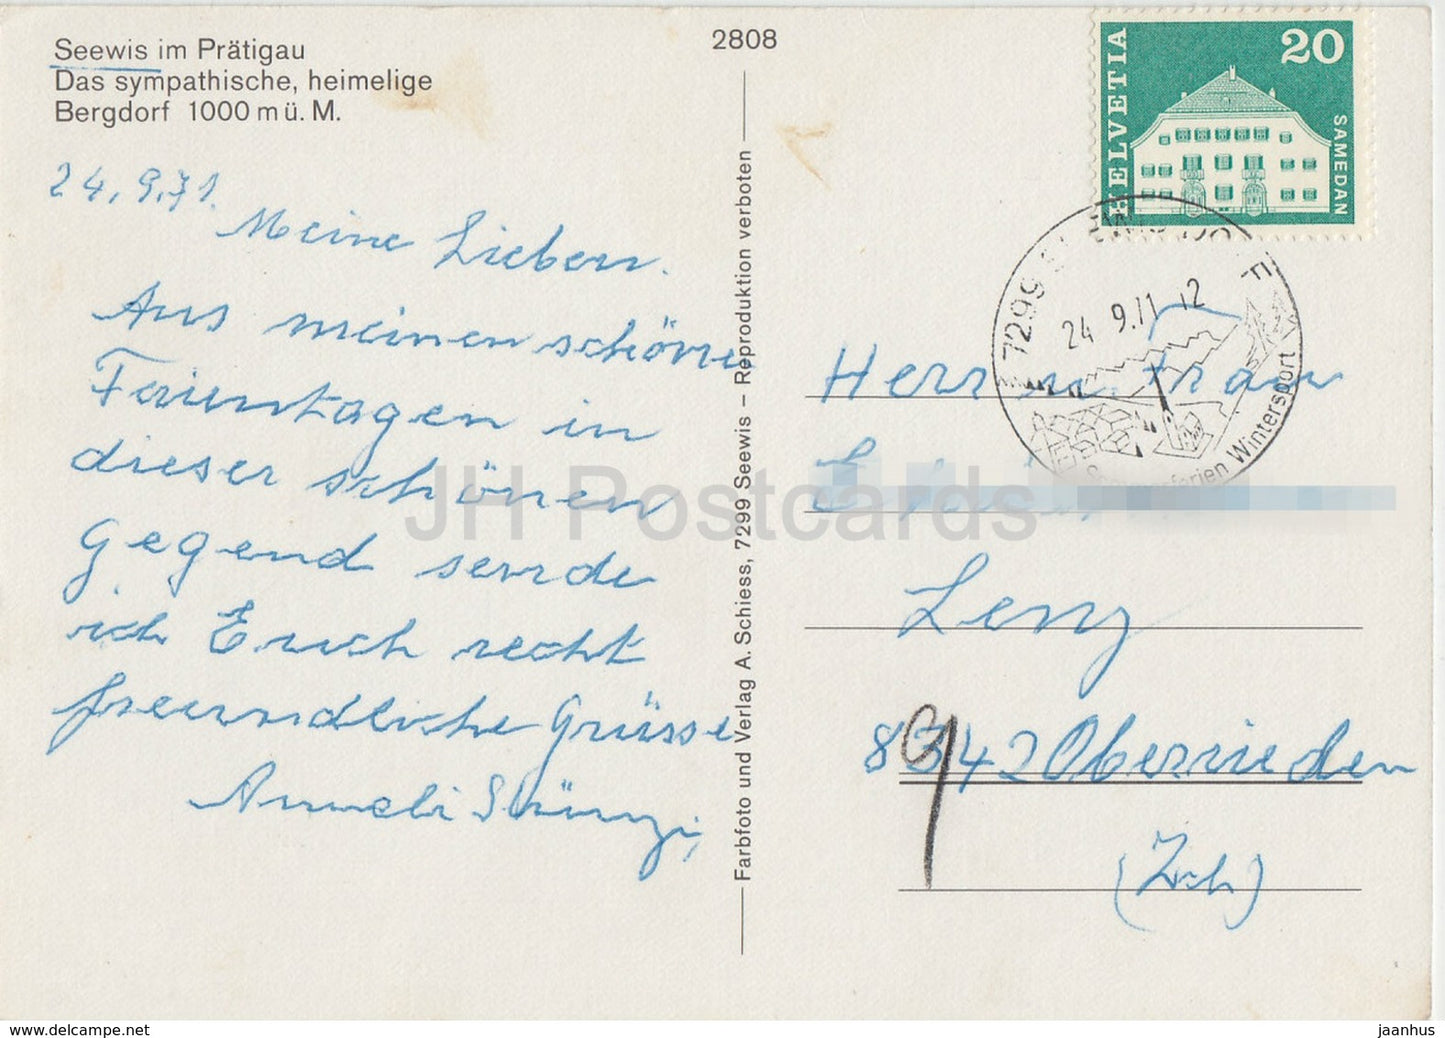 Seewis im Prätigau
Das sympathische, heimelige
Bergdorf 1000 m ü. M.
24.9.71.
Meine Lieben.
Aus meinen schönen
Ferientagen in
dieser schönen
Gegend sende
ich Euch recht
freundliche Grüsse
Anneli Stünzi,
2808
Farbfoto und Verlag A. Schiess, 7299 Seewis – Reproduktion verboten
HELVETIA
20
SAMEDAN
7299 SEEWIS DORF
24 9.71 12
Sommerferien Wintersport
Herrn u. Frau
Lenz
8942 Oberrieden
(Zch)
JH Postcards
www.delcampe.net
jaanhus